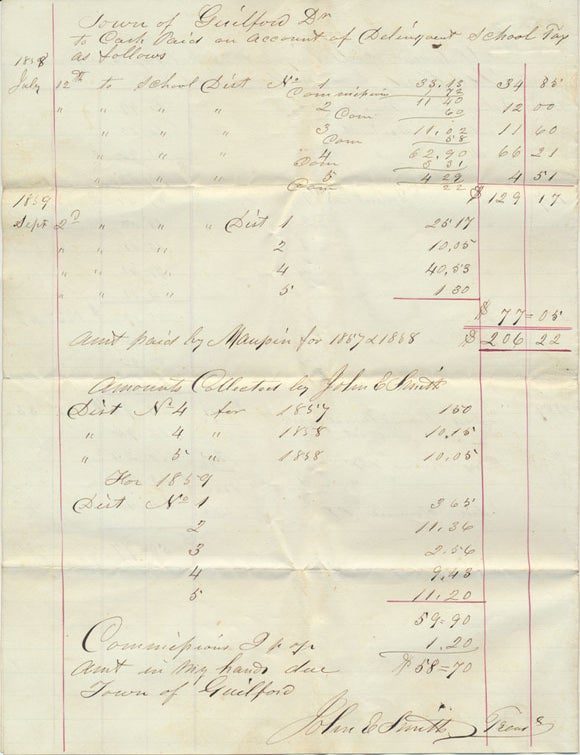 Town of Guilford Dr
to Cash Paid on account of Delinquent School Tax
as follows
1858
July 12th to School Dist No 1 33.13 34 85
Commission 1 72
" " " " 2 11 40 12 00
Com 60
" " " " 3 11.02 11 60
Com 58
" " " " 4 62.90 66 21
Com 3 31
" " " " 5 4 29 4 51
Com 22
$ 129 17
1859
Sept 2d " " " Dist 1 25 17
" " " 2 10.05
" " " 4 40.53
" " " 5 1 30
$ 77=05
Amt paid by Maupin for 1857 & 1858 $ 206 22
Amounts Collected by John E Smith
Dist No 4 for 1857 1 50
" 4 " 1858 10.15
" 5 " 1858 10.05
For 1859
Dist No 1 3 65
2 11.36
3 2.56
4 9.43
5 11.20
59=90
Commissions 2 pr ct 1.20
Amt in my hands due $ 58=70
Town of Guilford
John E Smith Treas